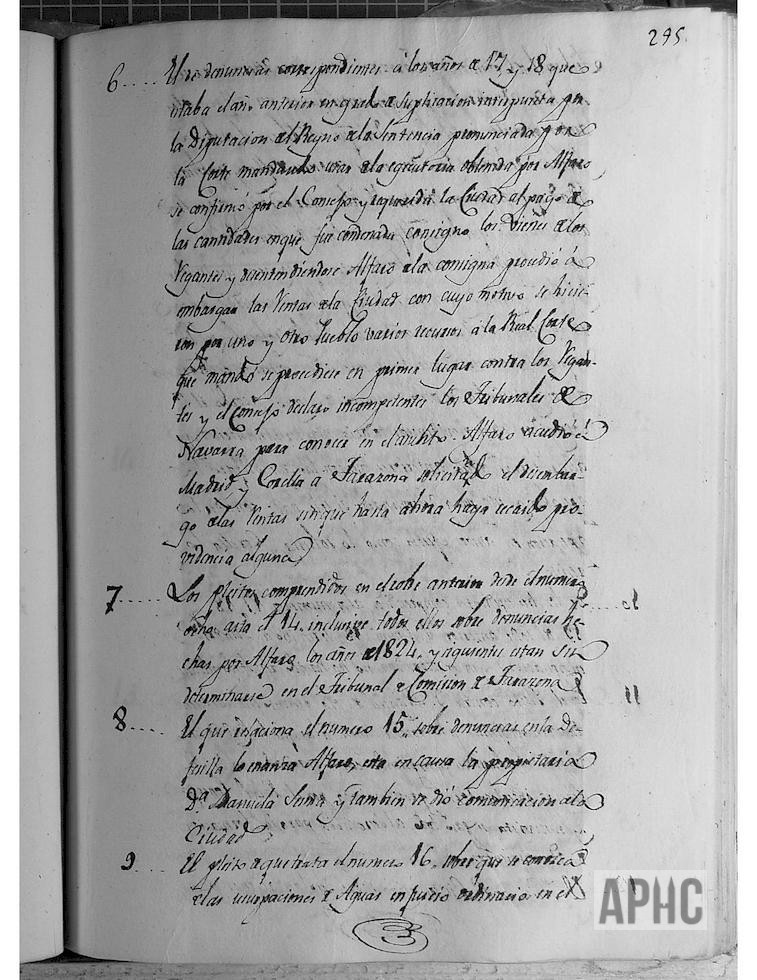 295.
6.... El de denuncias correspondientes à los años de 17, y 18 que
estaba el año anterior en grado de suplicacion interpuesta por
la Diputacion del Reyno de la Sentencia pronunciada por
la Corte mandando usar de la egecutoria obtenida por Alfaro,
se confirmó por el Consejo y requerida la Ciudad al pago de
las cantidades en que fue condenada consignó los Vienes de los
Regantes y desentendiendose Alfaro de la consigna procedió á
embargar las Rentas de la Ciudad con cuyo motivo se hicie-
ron por uno y otro Pueblo varios recursos á la Real Corte
que mandó se procediese en primer lugar contra los Regan-
tes y el Consejo declaro incompetentes los Tribunales de
Navarra para conocer en el asunto. Alfaro acudió á
Madrid y Corella a Tarazona solicitando el desembar-
go de las Rentas sin que hasta ahora haya recaido pro-
videncia alguna
7..... Los pleitos comprendidos en el sobre anterior desde el numero
ocho asta el 14. inclusive todos ellos sobre denuncias he-
chas por Alfaro los años de 1824. y siguiente estan sin
determinarse en el Tribunal de Comision de Tarazona
8.... El que relaciona el numero 15,, sobre denuncias en la De-
Alfaro, esta en causa la propietaria
D.ª Manuela y tambien se dió comunicacion a la
Ciudad
9... El pleito de que trata el numero 16. sobre que se conozca
de las usurpaciones de Aguas en juicio ordinario en el
3
APHC